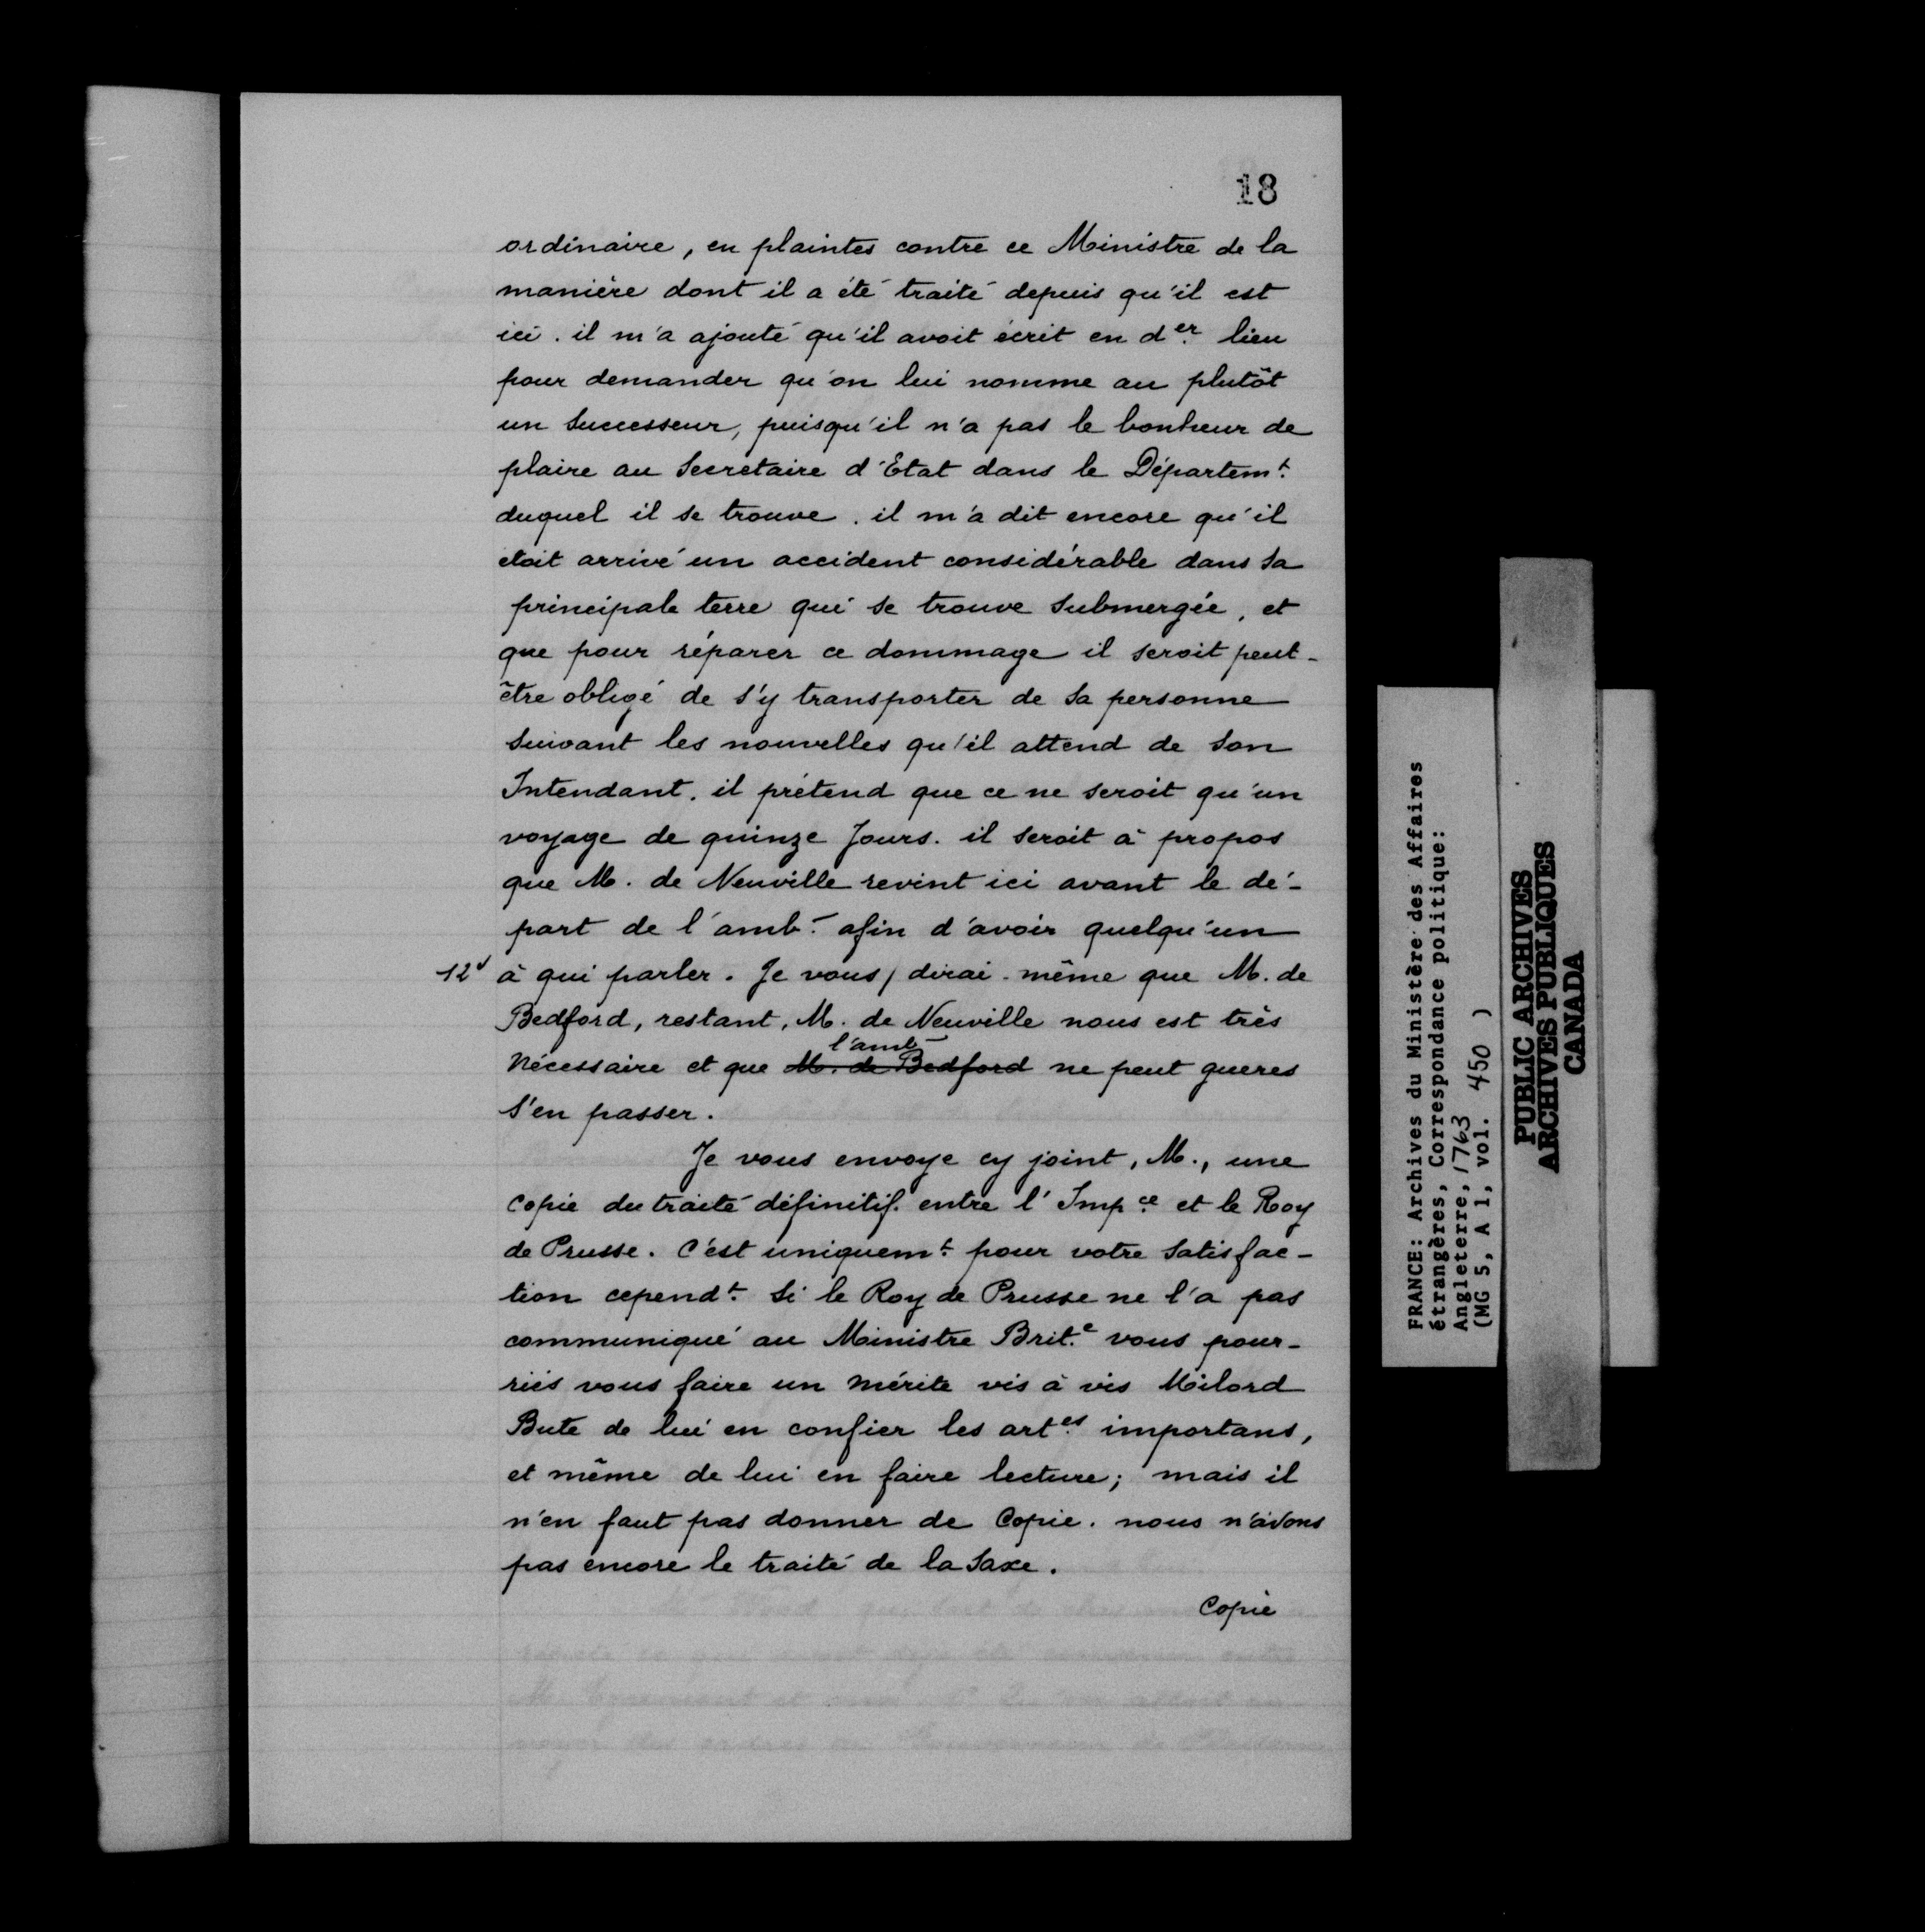 18
ordinaire, en plaintes contre ce Ministre de la
manière dont il a été traité depuis qu'il est
ici. il m'a ajouté qu'il avoit écrit en d.er lieu
pour demander qu'on lui nomme au plutôt
un Successeur, puisqu'il n'a pas le bonheur de
plaire au Secretaire d'Etat dans le Départem.t
duquel il se trouve. il m'a dit encore qu'il
etoit arrivé un accident considérable dans sa
principale terre qui se trouve submergée, et
que pour réparer ce dommage il seroit peut-
être obligé de s'y transporter de sa personne
suivant les nouvelles qu'il attend de son
Intendant. il prétend que ce ne seroit qu'un
voyage de quinze Jours. il seroit à propos
que M. de Neuville revint ici avant le dé-
part de l'amb.r afin d'avoir quelqu'un
12v à qui parler. Je vous / dirai même que M. de
Bedford, restant, M. de Neuville nous est très
l'amb.r
Nécessaire et que M. de Bedford ne peut gueres
s'en passer.
Je vous envoye cy joint, M., une
Copie du traité définitif entre l'Imp.ce et le Roy
de Prusse. C'est uniquem.t pour votre Satisfac-
tion cepend.t Si le Roy de Prusse ne l'a pas
communiqué au Ministre Brit.e vous pour-
riés vous faire un Mérite vis à vis Milord
Bute de lui en confier les art.es importans,
et même de lui en faire lecture; mais il
n'en faut pas donner de Copie. nous n'avons
pas encore le traité de la Saxe.
Copie
FRANCE: Archives du Ministère des Affaires
étrangères, Correspondance politique:
Angleterre, 1763
(MG 5, A 1, vol. 450 )
PUBLIC ARCHIVES
ARCHIVES PUBLIQUES
CANADA